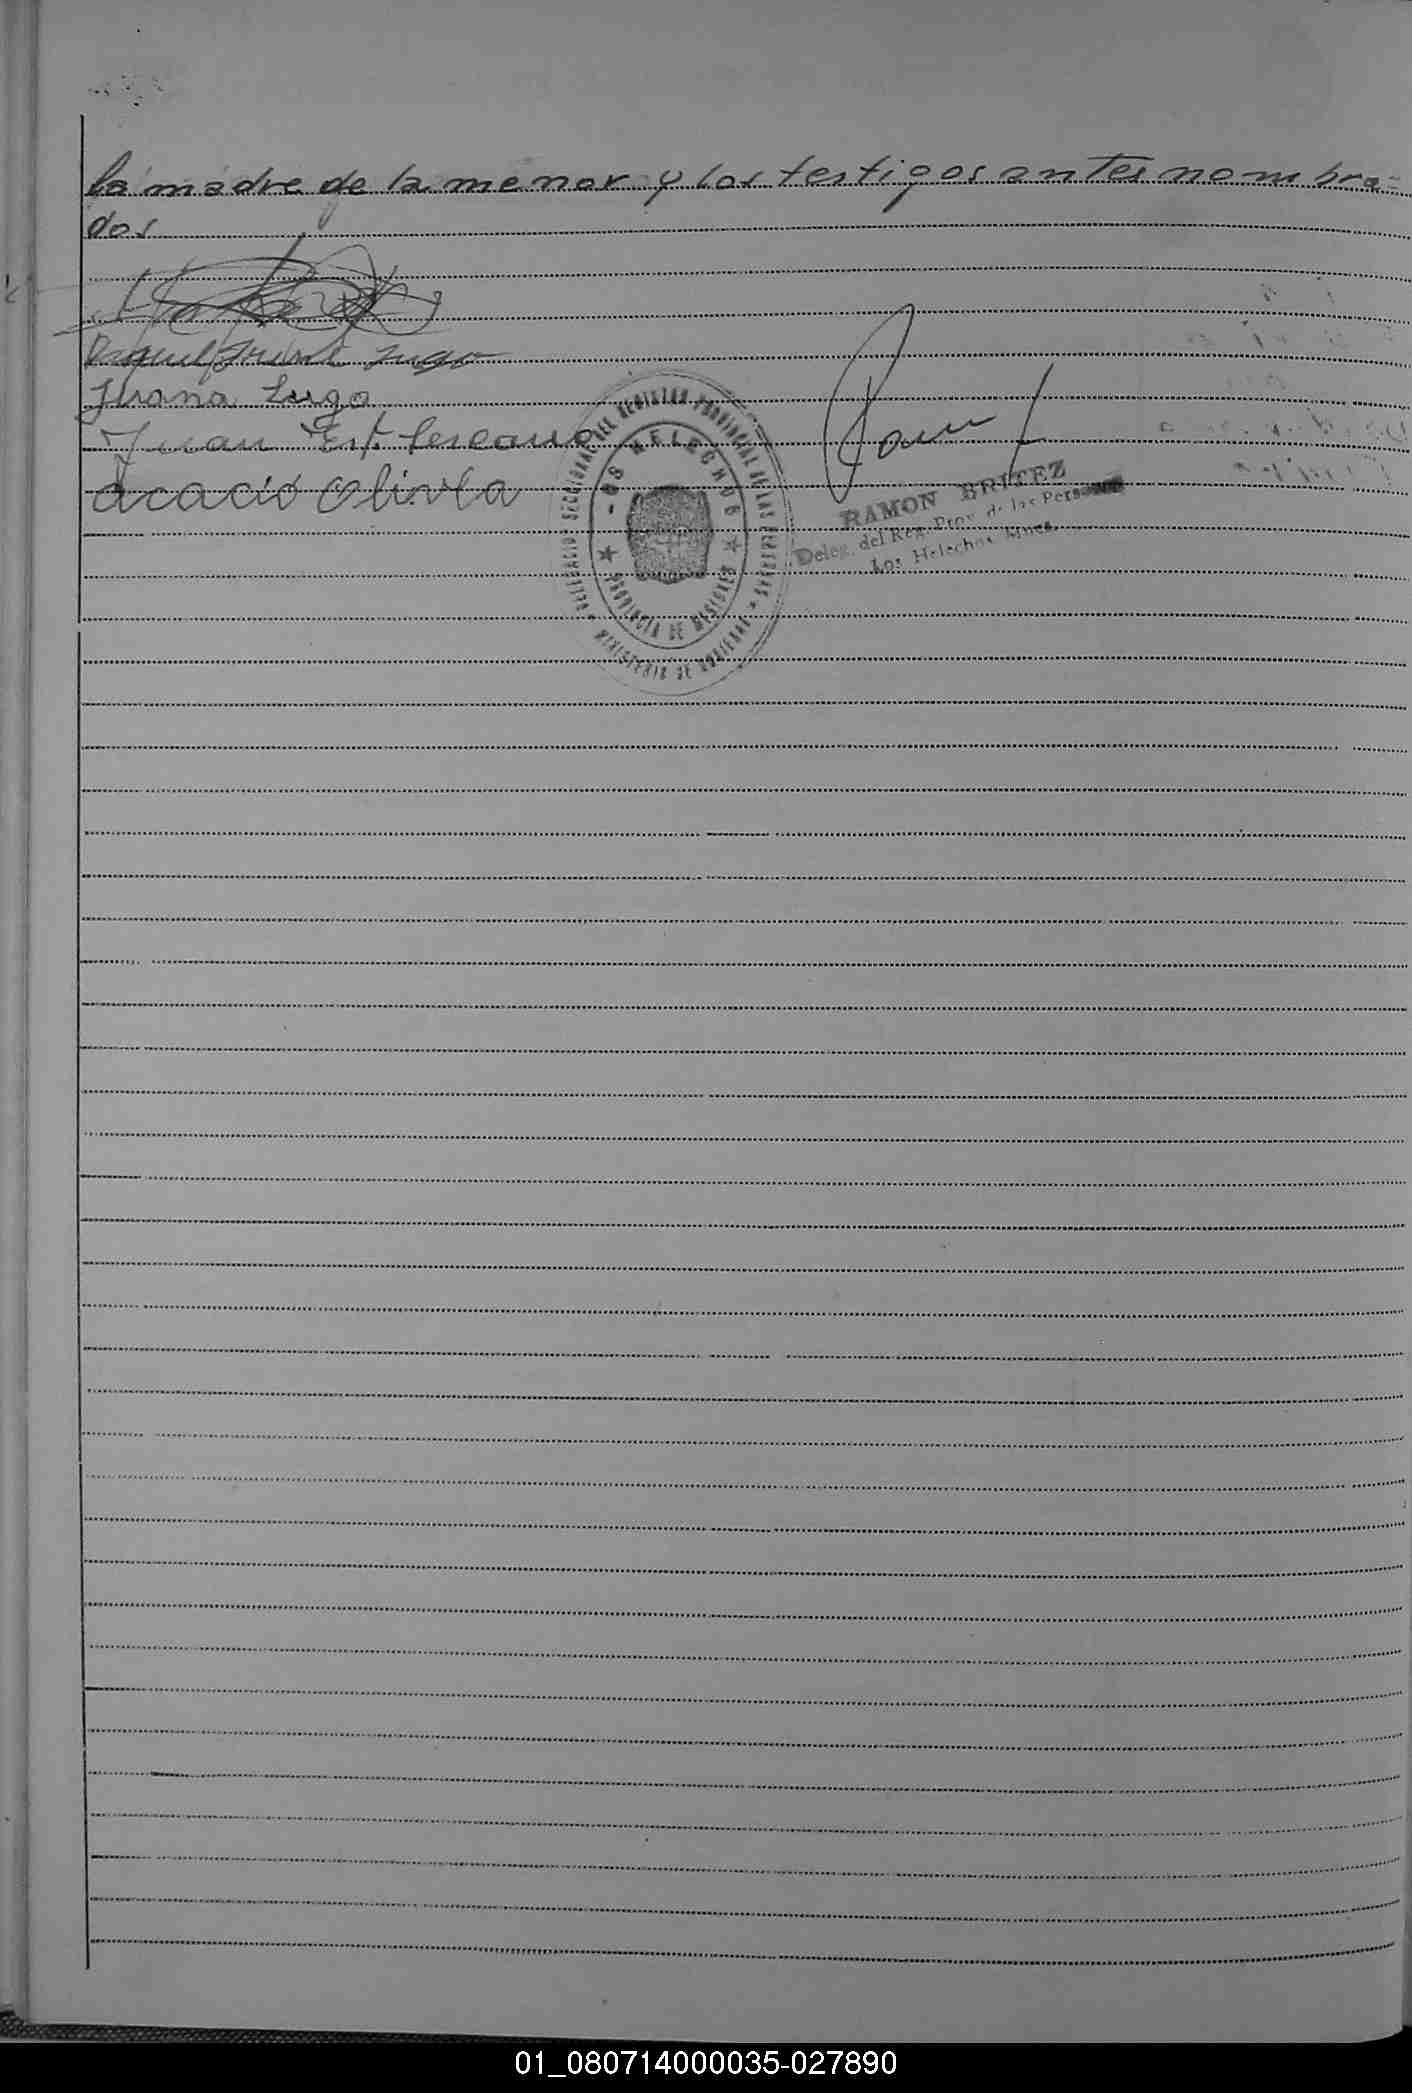 la madre de la menor y los testigos antes nombra-
dos
Miguel Lugo
Juana Lugo
Juan
Acacio Olivera
DELEGACIO SECCIONAL DEL REGISTRO PROVINCIAL DE LAS PERSONAS
MINISTERIO DE GOBIERNO
LOS HELECHOS
PROVINCIA DE MISIONES
RAMON BRITEZ
Deleg. del Reg. Prov. de las Personas
Los Helechos Mnes.
01_080714000035-027890